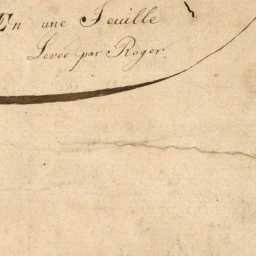 En une Feuille
Levée par Roger.